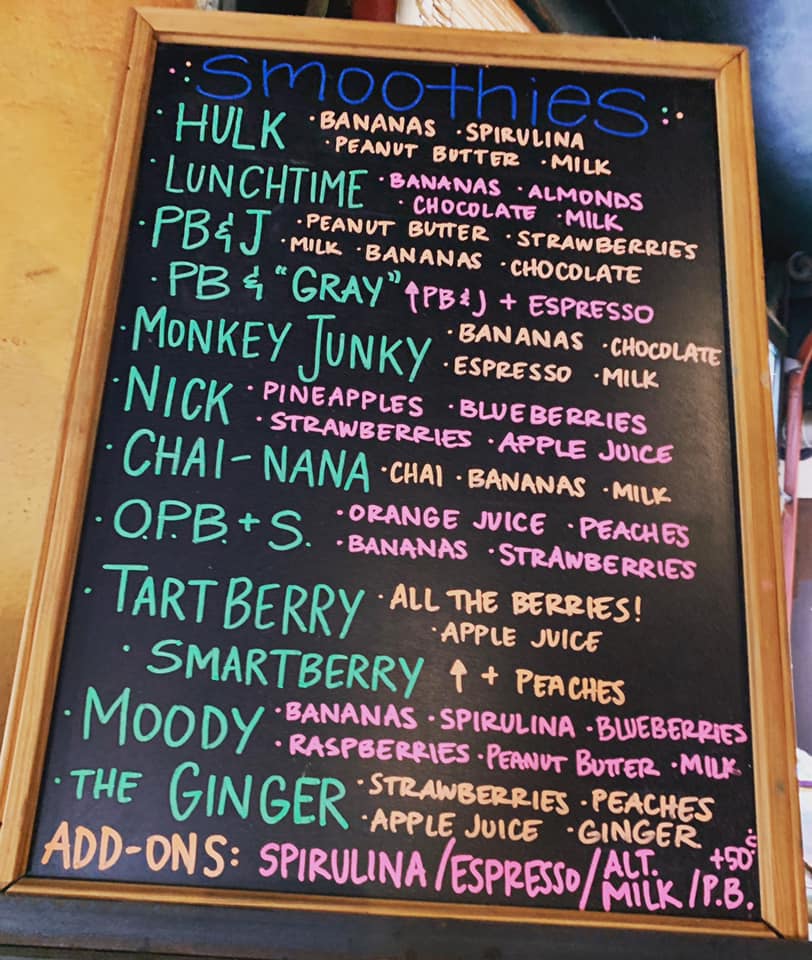 smoothies
· HULK · BANANAS · SPIRULINA
· PEANUT BUTTER · MILK
· LUNCHTIME · BANANAS · ALMONDS
· CHOCOLATE · MILK
· PB & J · PEANUT BUTTER · STRAWBERRIES
· MILK · BANANAS · CHOCOLATE
· PB & "GRAY" ↑ PB & J + ESPRESSO
· MONKEY JUNKY · BANANAS · CHOCOLATE
· ESPRESSO · MILK
· NICK · PINEAPPLES · BLUEBERRIES
· STRAWBERRIES · APPLE JUICE
· CHAI-NANA · CHAI · BANANAS · MILK
· O.P.B. + S. · ORANGE JUICE · PEACHES
· BANANAS · STRAWBERRIES
· TARTBERRY · ALL THE BERRIES!
· APPLE JUICE
· SMARTBERRY ↑ + PEACHES
· MOODY · BANANAS · SPIRULINA · BLUEBERRIES
· RASPBERRIES · PEANUT BUTTER · MILK
· THE GINGER · STRAWBERRIES · PEACHES
· APPLE JUICE · GINGER
ADD-ONS: SPIRULINA/ESPRESSO/ALT. MILK/P.B. +50¢